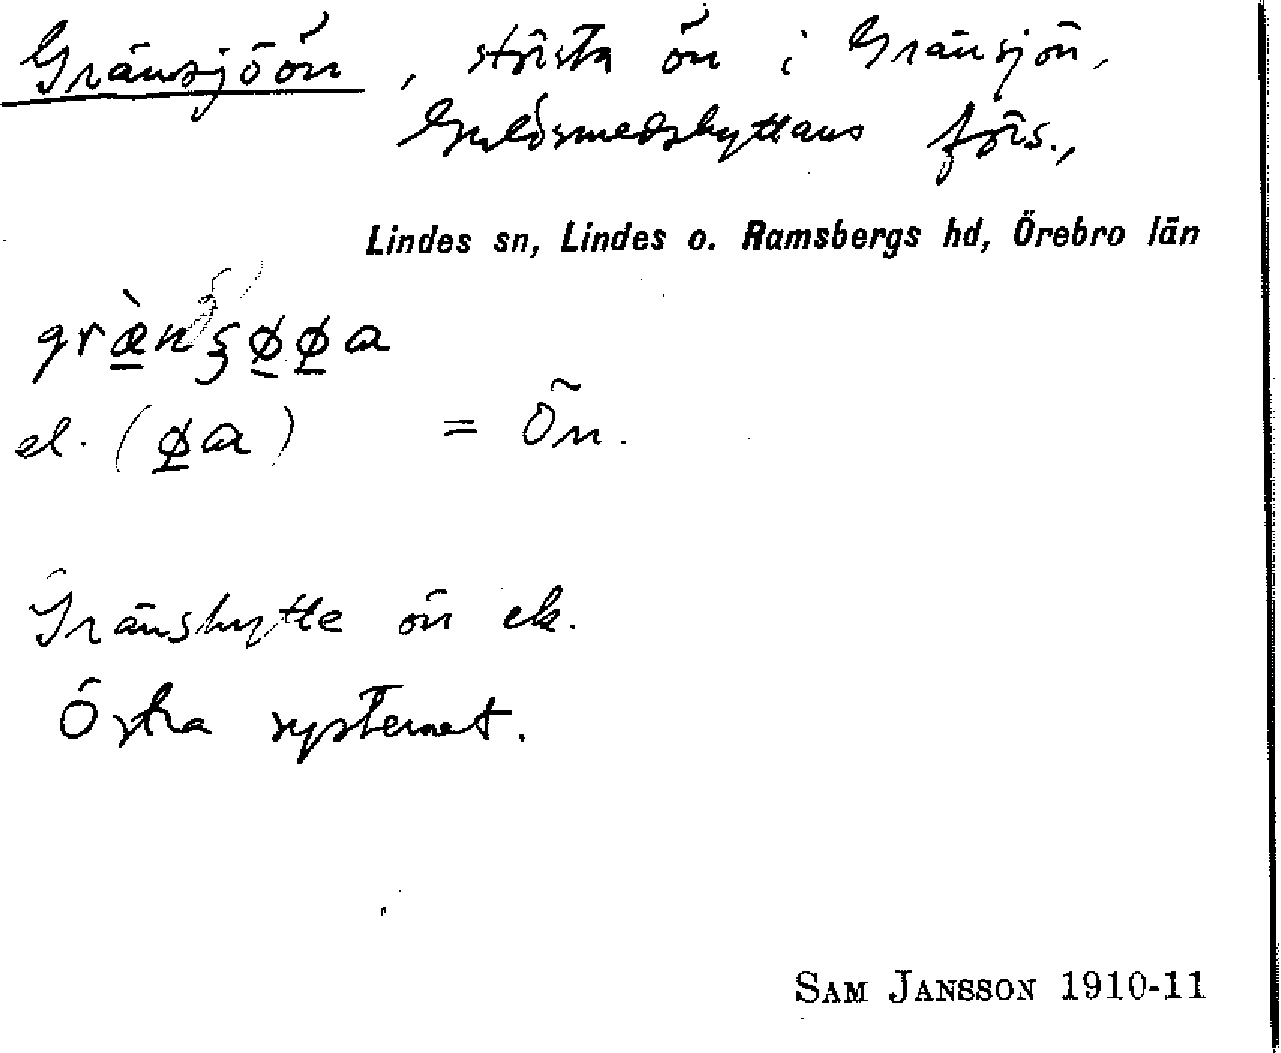 Gränsjöön, största ön i Gränsjön,
Guldsmedshyttans förs.,
Lindes sn, Lindes o. Ramsbergs hd, Örebro län
græ̀nʂøøa
el. (øa) = Ön.
Gränshytte ön ek.
Östra systemet.
SAM JANSSON 1910-11